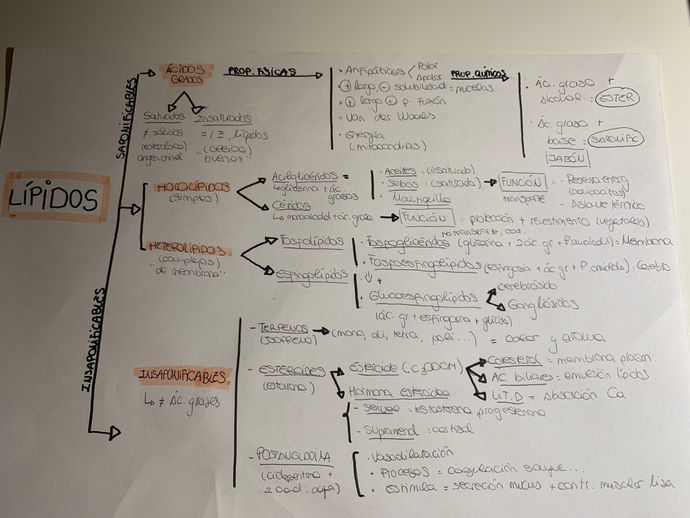 LÍPIDOS
SAPONIFICABLES
INSAPONIFICABLES
ÁCIDOS
GRASOS
PROP. FÍSICAS
Saturados Insaturados
≠ sólidos
= / ≡, líquidos
origen animal
buenos
· Anfipáticos
Polar
Apolar
· ⊕ largo ⊖ solubilidad = micelas
· ⊕ largo ⊕ p. Fusión
· Van der Waals
· Energía
(mitocondrias)
PROP. QUÍMICAS
· Ác. graso +
alcohol = ESTER
· Ác graso +
base = SAPONIFIC
JABÓN
HOLOLÍPIDOS
(simples)
Acilglicéridos =
glicerina + ác.
grasos
Céridos
· Aceites = (insaturado)
· Sebos = (saturado)
· Mantequilla
FUNCIÓN
transporte
- Reserva energ.
- Aislante térmico
FUNCIÓN - protección + revestimiento (vegetales)
HETEROLÍPIDOS
(complejos)
de membrana
Fosfolípidos
· Fosfoglicéridos (glicerina + 2 ác gr + P. + alcohol) = Membrana
esfingolípidos
· Fosfoesfingolípidos (esfingosina + ác gr +
· Glucoesfingolípidos
(ác. gr + esfingosina + glúcido)
cerebrósido
Gangliósidos
INSAPONIFICABLES
↳ ≠ Ác. grasos
- TERPENOS → (mono, di, tetra, poli...) = color y aroma
(isopreno)
- ESTEROIDES
(esterano)
Esteroide
Colesterol = membrana plasm.
AC biliares = emulsión lípidos
VIT. D = absorción Ca
Hormona esteroidea
- Sexual = testosterona progesterona
- Suprarrenal = cortisol
- POSTANGLADINA
(ciclopentano +
· Vasodilatación
· Procesos = coagulación sangre...
· Estimula = secreción mucus + contr. muscular lisa